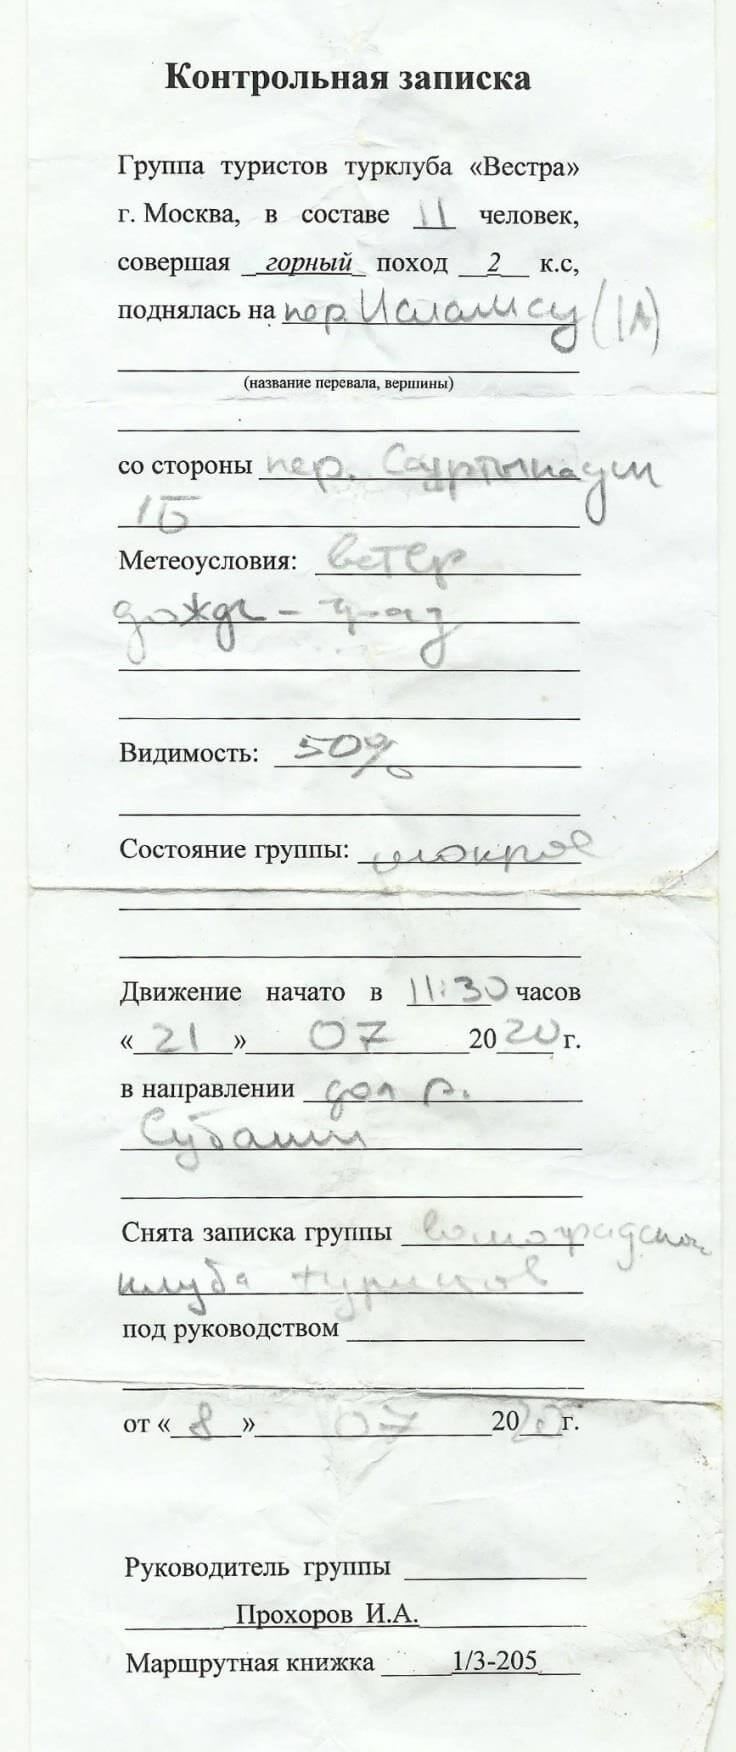 Контрольная записка
Группа туристов турклуба «Вестра»
г. Москва, в составе 11 человек,
совершая горный поход 2 к.с,
поднялась на пер. Исламсу (1А)
(название перевала, вершины)
со стороны пер.
1Б
Метеоусловия: ветер
дождь - град
Видимость: 50%
Состояние группы: мокрое
Движение начато в 11:30 часов
«21» 07 2020 г.
в направлении дол р.
Субаши
Снята записка группы
клуба туристов
под руководством
от «8» 07 2020 г.
Руководитель группы
Прохоров И.А.
Маршрутная книжка 1/3-205